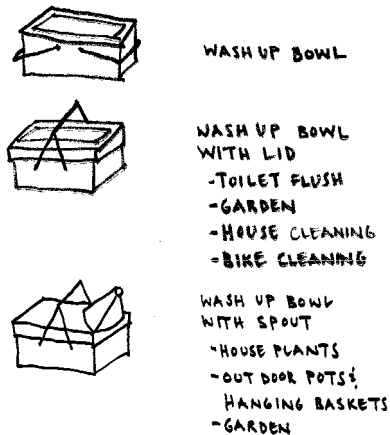 WASH UP BOWL
WASH UP BOWL
WITH LID
-TOILET FLUSH
-GARDEN
-HOUSE CLEANING
-BIKE CLEANING
WASH UP BOWL
WITH SPOUT
-HOUSE PLANTS
-OUT DOOR POTS &
HANGING BASKETS
-GARDEN